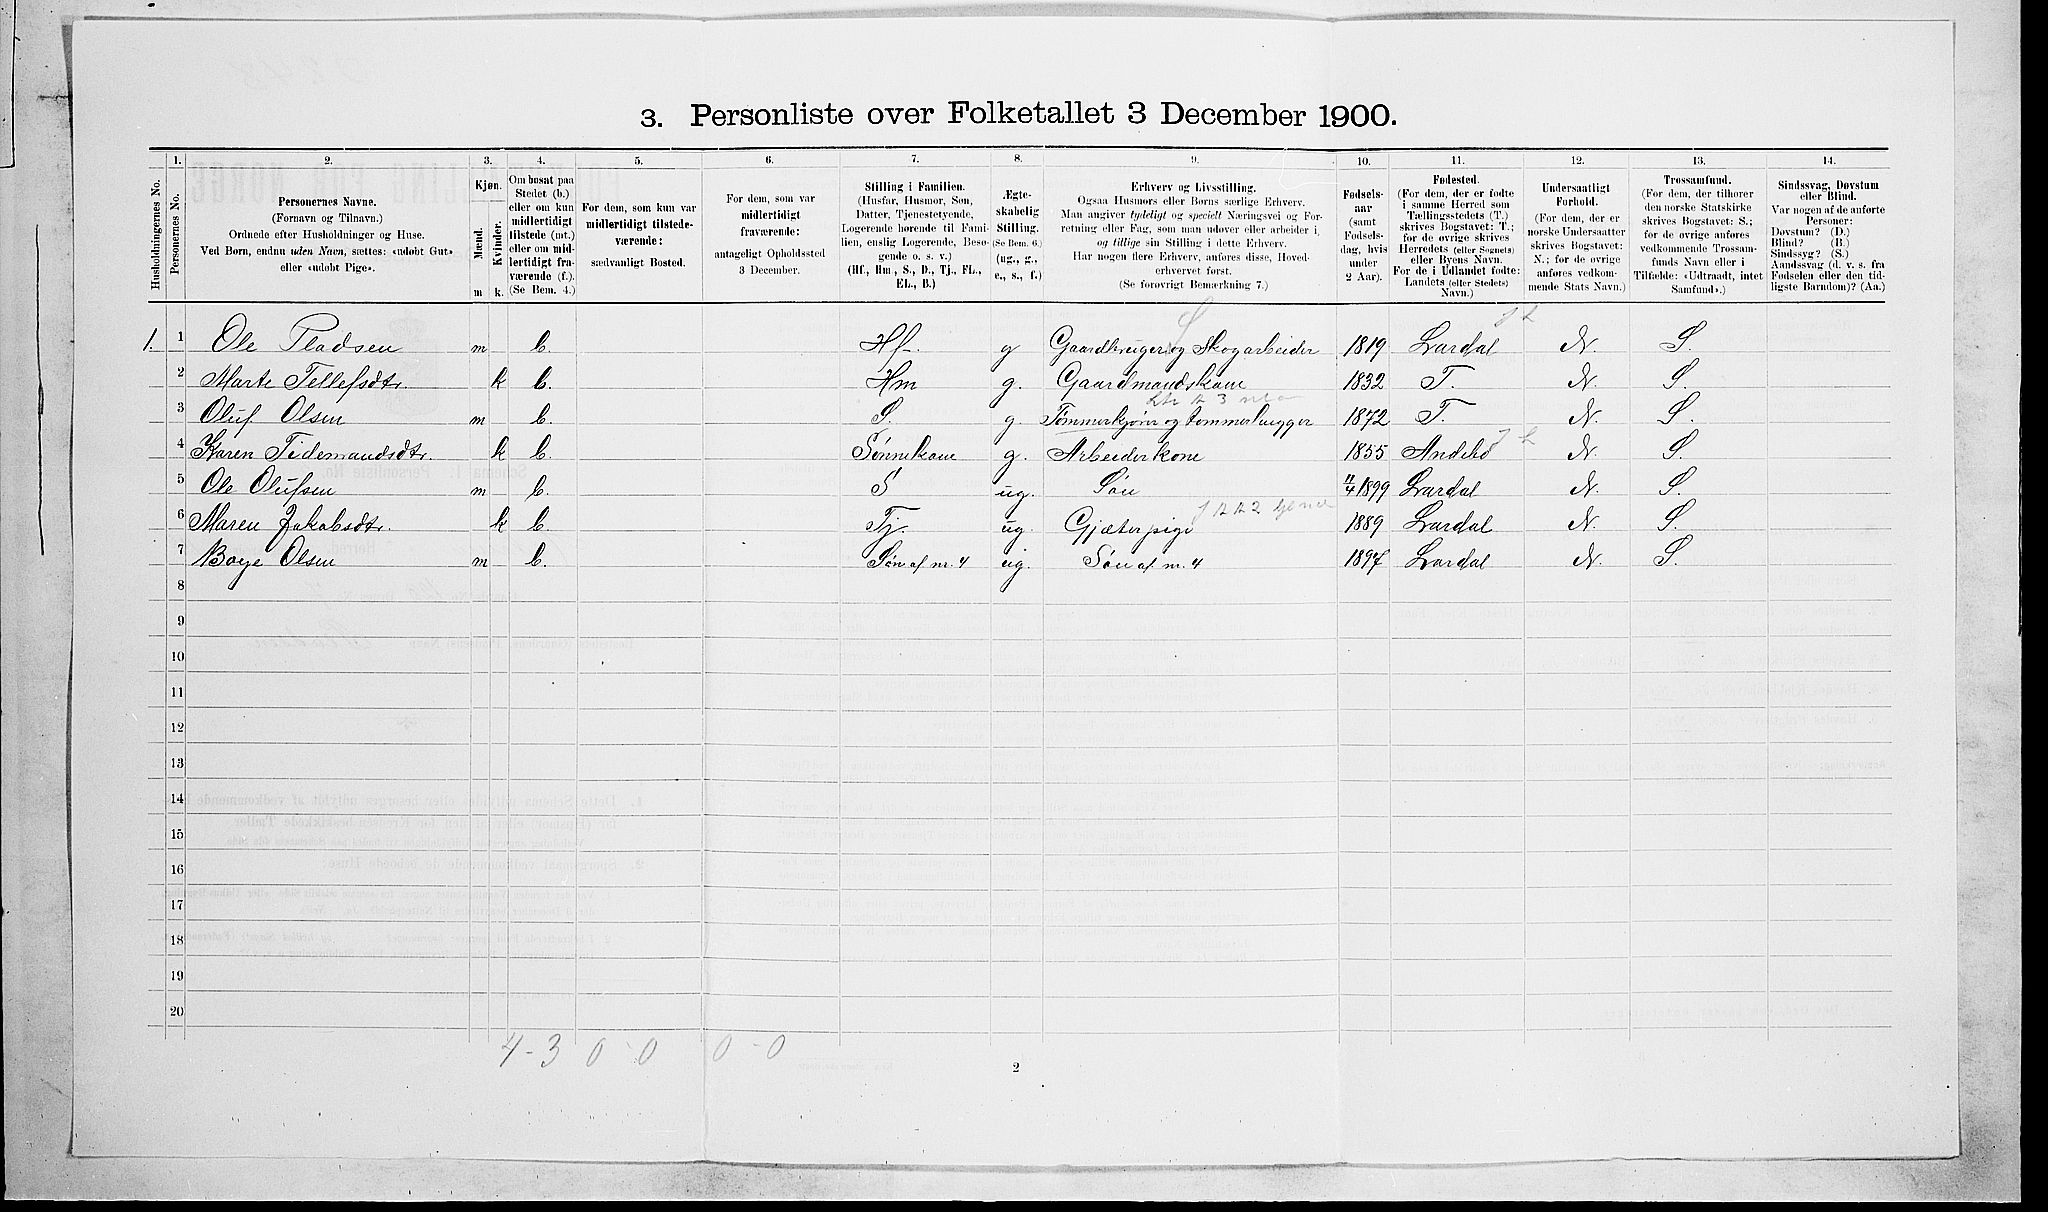 3. Personliste over Folketallet 3 December 1900.
1. 2. 3. 4. 5. 6. 7. 8. 9. 10. 11. 12. 13. 14.
Husholdningernes No.
Personernes No.
Personernes Navne.
(Fornavn og Tilnavn.)
Ordnede efter Husholdninger og Huse.
Ved Børn, endnu uden Navn, sættes: «udøbt Gut»
eller «udøbt Pige».
Kjøn.
Mænd.
Kvinder.
m k.
Om bosat paa
Stedet (b.)
eller om kun
midlertidigt
tilstede (mt.)
eller om mid-
lertidigt fra-
værende (f.).
(Se Bem. 4.)
For dem, som kun var
midlertidigt tilstede-
værende:
sædvanligt Bosted.
For dem, som var
midlertidigt
fraværende:
antageligt Opholdssted
3 December.
Stilling i Familien.
(Husfar, Husmor, Søn,
Datter, Tjenestetyende,
Logerende hørende til Fami-
lien, enslig Logerende, Besø-
gende o. s. v.)
(Hf., Hm., S., D., Tj., FL.,
EL., B.)
Ægte-
skabelig
Stilling.
(Se Bem. 6.)
(ug., g.,
e., s., f.)
Erhverv og Livsstilling.
Ogsaa Husmors eller Børns særlige Erhverv.
Man angiver tydeligt og specielt Næringsvei og For-
retning eller Fag, som man udøver eller arbeider i,
og tillige sin Stilling i dette Erhverv.
Har nogen flere Erhverv, anføres disse, Hoved-
erhvervet først.
(Se forøvrigt Bemærkning 7.)
Fødsels-
aar
(samt
Fødsels-
dag, hvis
under
2 Aar).
Fødested.
(For dem, der er fødte
i samme Herred som
Tællingsstedets (T.)
skrives Bogstavet: T.;
for de øvrige skrives
Herredets (eller Sognets)
eller Byens Navn.
For de i Udlandet fødte:
Landets (eller Stedets)
Navn.)
Undersaatligt
Forhold.
(For dem, der er
norske Undersaatter
skrives Bogstavet:
N.; for de øvrige
anføres vedkom-
mende Stats Navn.)
Trossamfund.
(For dem, der tilhører
den norske Statskirke
skrives Bogstavet: S.;
for de øvrige anføres
vedkommende Trossam-
funds Navn eller i
Tilfælde: «Udtraadt, intet
Samfund».)
Sindssvag, Døvstum
eller Blind.
Var nogen af de anførte
Personer:
Døvstum? (D.)
Blind? (B.)
Sindssyg? (S.)
Aandssvag (d. v. s. fra
Fødselen eller den tid-
ligste Barndom)? (Aa.)
1. 1 Ole Pladsen m b. Hf. g Gaardbruger og Skogarbeider 1819 Lardal N. S.
2 Marte Tellefsdtr. k b. Hm g. Gaardmandskone 1832 T. N. S.
3 Oluf Olsen m b. S. g. Tømmerkjører og tømmerhugger 1872 T. N. S.
4 Karen Tidemandsdtr. k b. Sønnekone g. Arbeiderkone 1855 Andebo N. S.
5 Ole Olufsen m b. S ug. Søn 11/4 1899 Lardal N. S.
6 Maren Jakobsdtr. k b. Tj. ug. Gjæterpige 1889 Lardal N. S.
7 Boye Olsen m b. Søn af nr. 4 ug. Søn af nr. 4 1897 Lardal N. S.
8
9
10
11
12
13
14
15
16
17
18
19
20
4 - 3 0 - 0 0 - 0
2